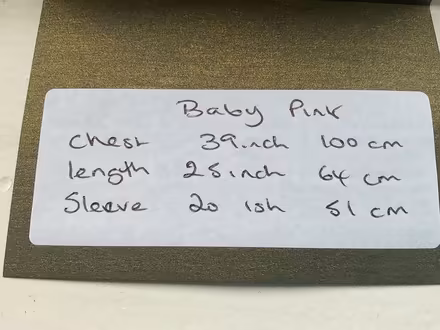 Baby Pink
Chest 39inch 100 cm
length 25inch 64 cm
Sleeve 20 ish 51 cm